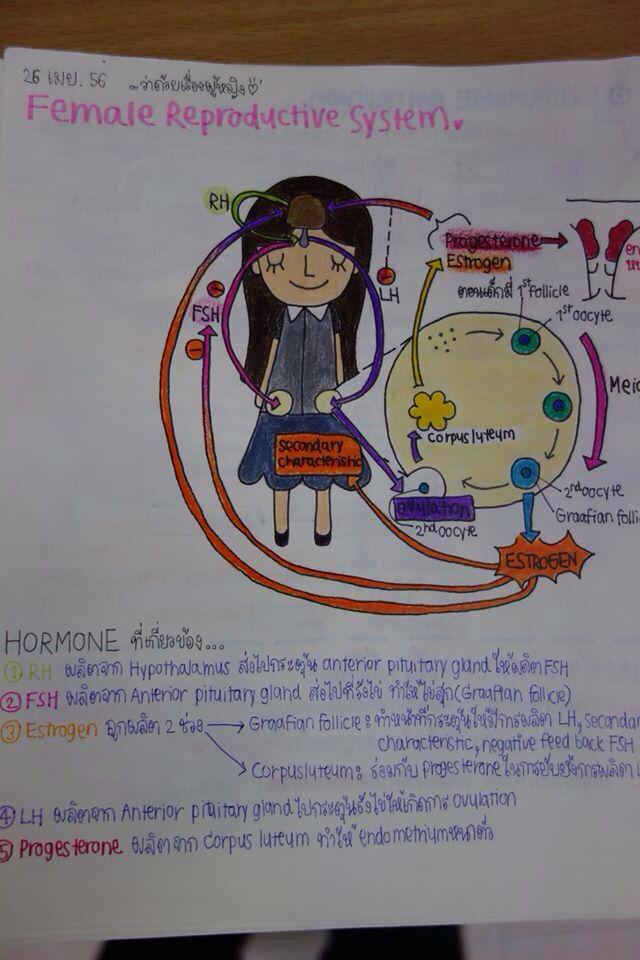 26 เมย. 56 ...ว่าด้วยเรื่องผู้หญิง
Female Reproductive System
RH
FSH
LH
Progesterone
Estrogen
ตอนเด็กมี 1st follicle
1st oocyte
Meio
corpus luteum
secondary
characteristic
ovulation
2nd oocyte
2nd oocyte
Graafian folli
ESTROGEN
HORMONE ที่เกี่ยวข้อง...
① RH ผลิตจาก Hypothalamus ส่งไปกระตุ้น anterior pituitary gland ให้ผลิต FSH
② FSH ผลิตจาก Anterior pituitary gland ส่งไปที่รังไข่ ทำให้ไข่สุก (Graafian follicle)
③ Estrogen ถูกผลิต 2 ช่วง → Graafian follicle : ทำหน้าที่กระตุ้นให้มีการผลิต LH, secondar
characteristic, negative feed back FSH
→ Corpus luteum : ร่วมกับ progesterone ในการยับยั้งการผลิต L
④ LH ผลิตจาก Anterior pituitary gland ไปกระตุ้นรังไข่ให้เกิดการ ovulation
⑤ Progesterone ผลิตจาก corpus luteum ทำให้ endometrium หนาตัว